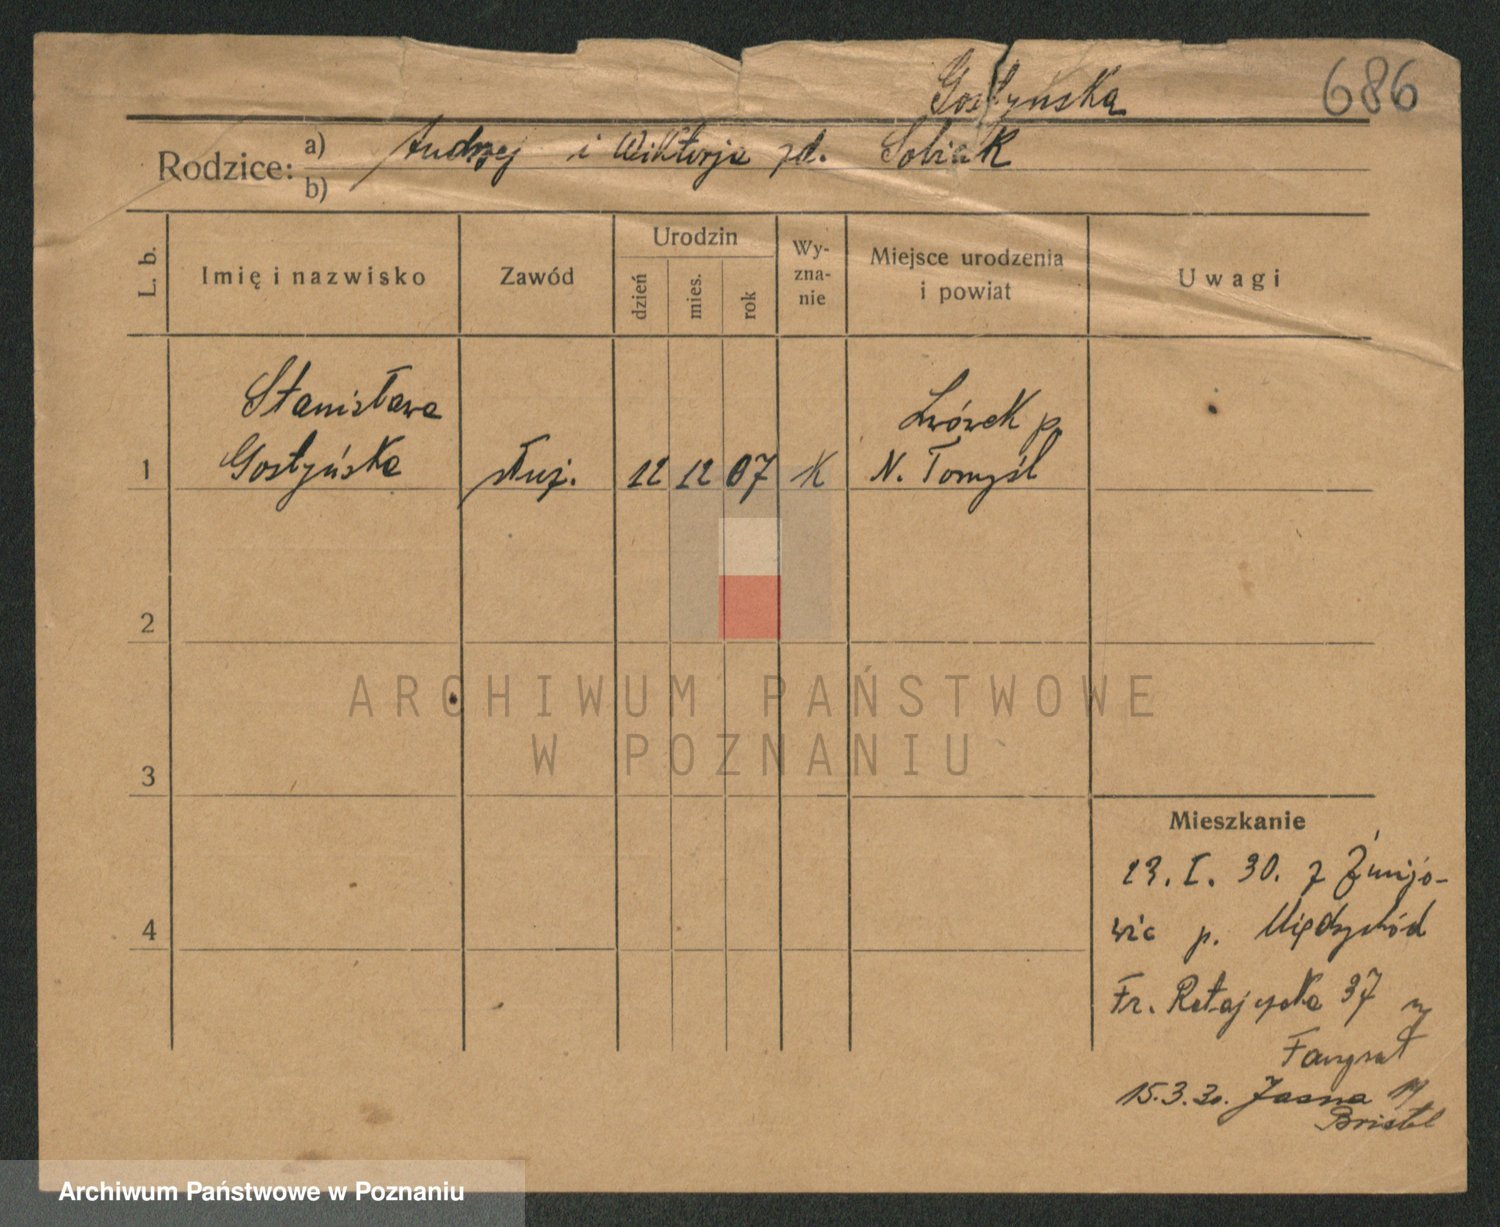 Gostyńska
686
Rodzice: a) Andrzej i Wiktorja zd. Sobiak
b)
L. b.
Imię i nazwisko
Zawód
Urodzin
dzień
mies.
rok
Wy-
zna-
nie
Miejsce urodzenia
i powiat
Uwagi
Stanisława
Lwówek p.
1 Gostyńska służ. 12 12 07 K N. Tomyśl
2
ARCHIWUM PAŃSTWOWE
W POZNANIU
3
Mieszkanie
23. I. 30. z
4 wic p. Międzychód
Fr. Ratajczaka 37
15.3.30. Jasna
Bristol
Archiwum Państwowe w Poznaniu